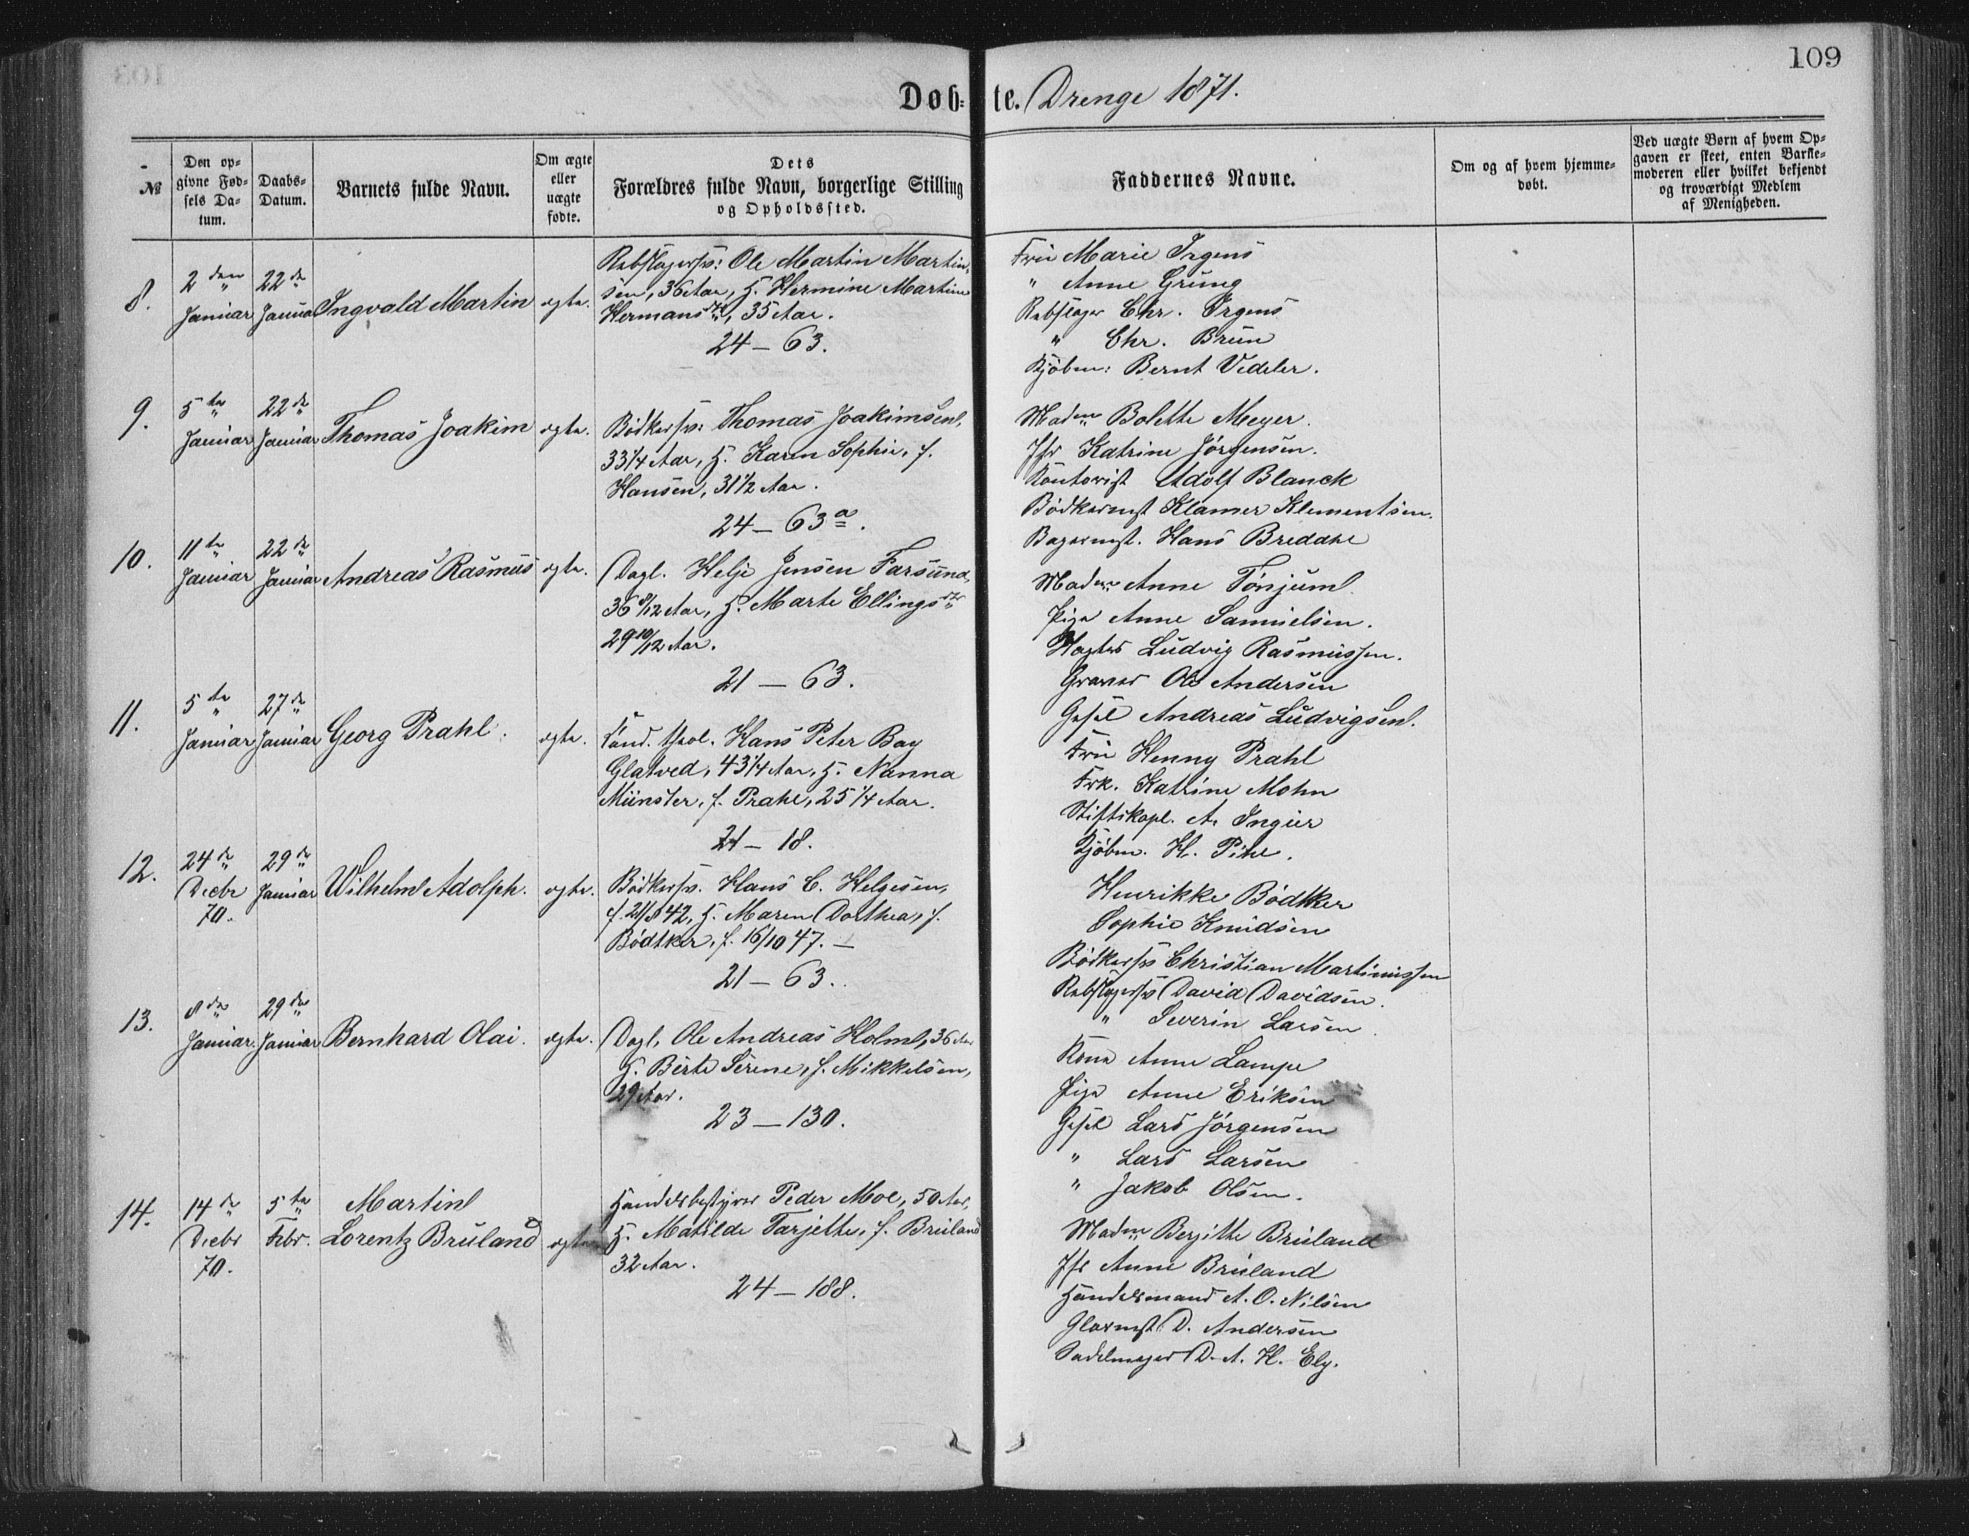 109
Døb= te. Drenge 1871.
№
Den op=
givne Fød=
sels Da=
tum.
Daabs=
Datum.
Barnets fulde Navn.
Om ægte
eller
uægte
fødte.
Dets
Forældres fulde Navn, borgerlige Stilling
og Opholdssted.
Faddernes Navne.
Om og af hvem hjemme=
døbt.
Ved uægte Børn af hvem Op=
gaven er skeet, enten Barsle=
moderen eller hvilket bekjendt
og troværdigt Medlem
af Menigheden.
8.
2den
Januar
22de
Januar
Ingvald Martin
ægte.
Rebslagersv: Ole Martin Martin=
sen, 36 Aar, H. Hermine Martine
Hermansdr, 35 Aar.
24 — 63.
Fru Marie Irgens
" Anne Grung
Rebslager Chr. Irgens
" Chr. Brun
Kjøbm: Bernt Vedeler.
9.
5te
Januar
22de
Januar
Thomas Joakim
ægte.
Bødkersv: Thomas Joakimsen,
33 1/4 Aar, H. Karen Sophie, f.
Hansen, 31 1/2 Aar.
24 — 63a.
Madm Bolette Meyer.
Jfr Katrine Jørgensen.
Kontorist Adolf Blanck
Bødkermst Klamer Klementsen.
Bagermst. Hans Breddal
10.
11te
Januar
22de
Januar
Andreas Rasmus
ægte.
Dagl. Helje Jensen Farsund,
36 8/12 Aar, H. Marte Ellingsdr
29 10/12 Aar.
21 — 63.
Madm Anne Tønjum
Pige Anne Samuelsen.
Vægter Ludvig Rasmussen.
Graver Ole Andersen
Gesel Andreas Ludvigsen.
11.
5te
Januar
27de
Januar
Georg Prahl.
ægte.
Cand. theol. Hans Peter Bay
Glatved, 43 1/4 Aar, H. Nanna
Münster, f. Prahl, 25 1/4 Aar.
21 — 18.
Fru Henny Prahl
Frk. Katrine Mohn
Stiftskapl. A. Ingier
Kjøbm. H. Pihl.
12.
24de
Decbr
70.
29de
Januar
Wilhelm Adolph.
ægte.
Bødkersv. Hans C. Helgesen,
f. 21/8 42, H. Maren Dorthea, f.
Bødtker, f. 16/10 47. —
21 — 63.
Henrikke Bødtker
Sophie Knudsen
Bødkersv Christian Martinussen
Rebslagersv David Davidsen.
" Severin Larsen.
13.
8de
Januar.
29de
Januar
Bernhard Olai.
ægte.
Dagl. Ole Andreas Holm, 36 Aar
H. Berte Serene, f. Mikkelsen,
29 Aar.
23 — 130.
Kone Anne Lampe
Pige Anne Eriksen
Gesel Lars Jørgensen
" Lars Larsen
" Jakob Olsen.
14.
14de
Decbr
70.
5te
Febr.
Martin
Lorentz Bruland
ægte
Handelsbestyrer Peder Moe, 50 Aar,
H. Matilde Tarjette, f. Bruland
32 Aar.
24 — 188.
Madm Bergitte Bruland
Jfr Anne Bruland
Handelsmand A. O. Nilsen
Glarmst D. Andersen
Sadelmager D. A. H. Ely.